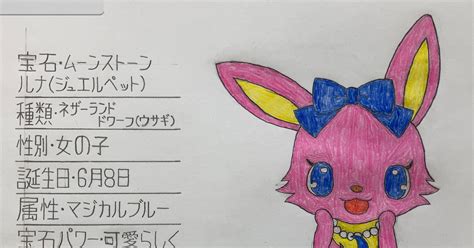 宝石・ムーンストーン
ルナ(ジュエルペット)
種類・ネザーランド
ドワーフ(ウサギ)
性別・女の子
誕生日・6月8日
属性・マジカルブルー
宝石パワー・可愛らしく